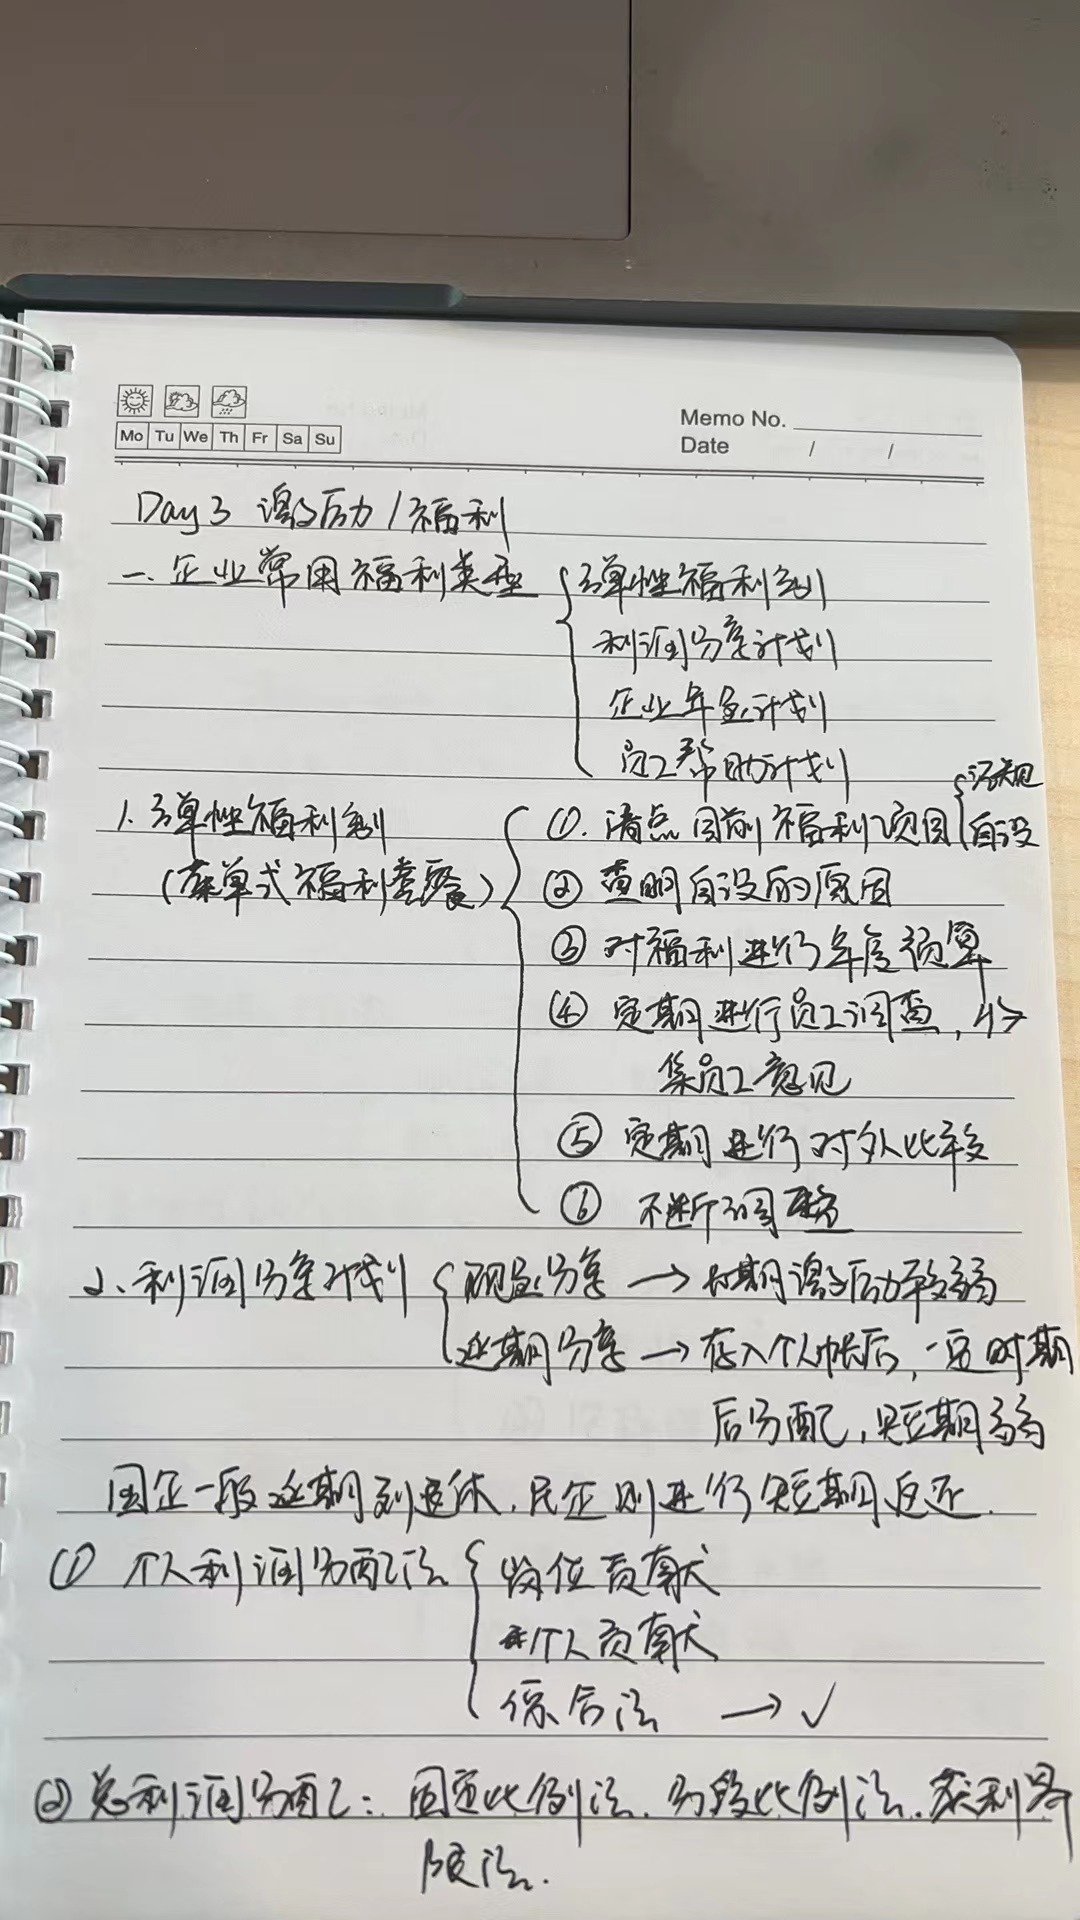 Mo Tu We Th Fr Sa Su
Memo No.
Date / /
Day 3 激励/福利
一、企业常用福利类型 { 弹性福利制
利润分享计划
企业年金计划
员工帮助计划
1. 弹性福利制
(菜单式福利套餐)
①. 清点目前福利项目 { 法规
自设
② 查明自设的原因
③ 对福利进行年度预算
④ 定期进行员工调查，收
集员工意见
⑤ 定期进行对外比较
⑥ 不断调整
2、利润分享计划 { 现金分享 → 长期激励较弱
延期分享 → 存入个人帐后，一定时期
后分配，短期弱
国企一般延期到退休，民企则进行短期返还.
① 个人利润分配法 { 岗位贡献
个人贡献
综合法 → ✓
② 总利润分配：固定比例法、分段比例法、获利界
限法.